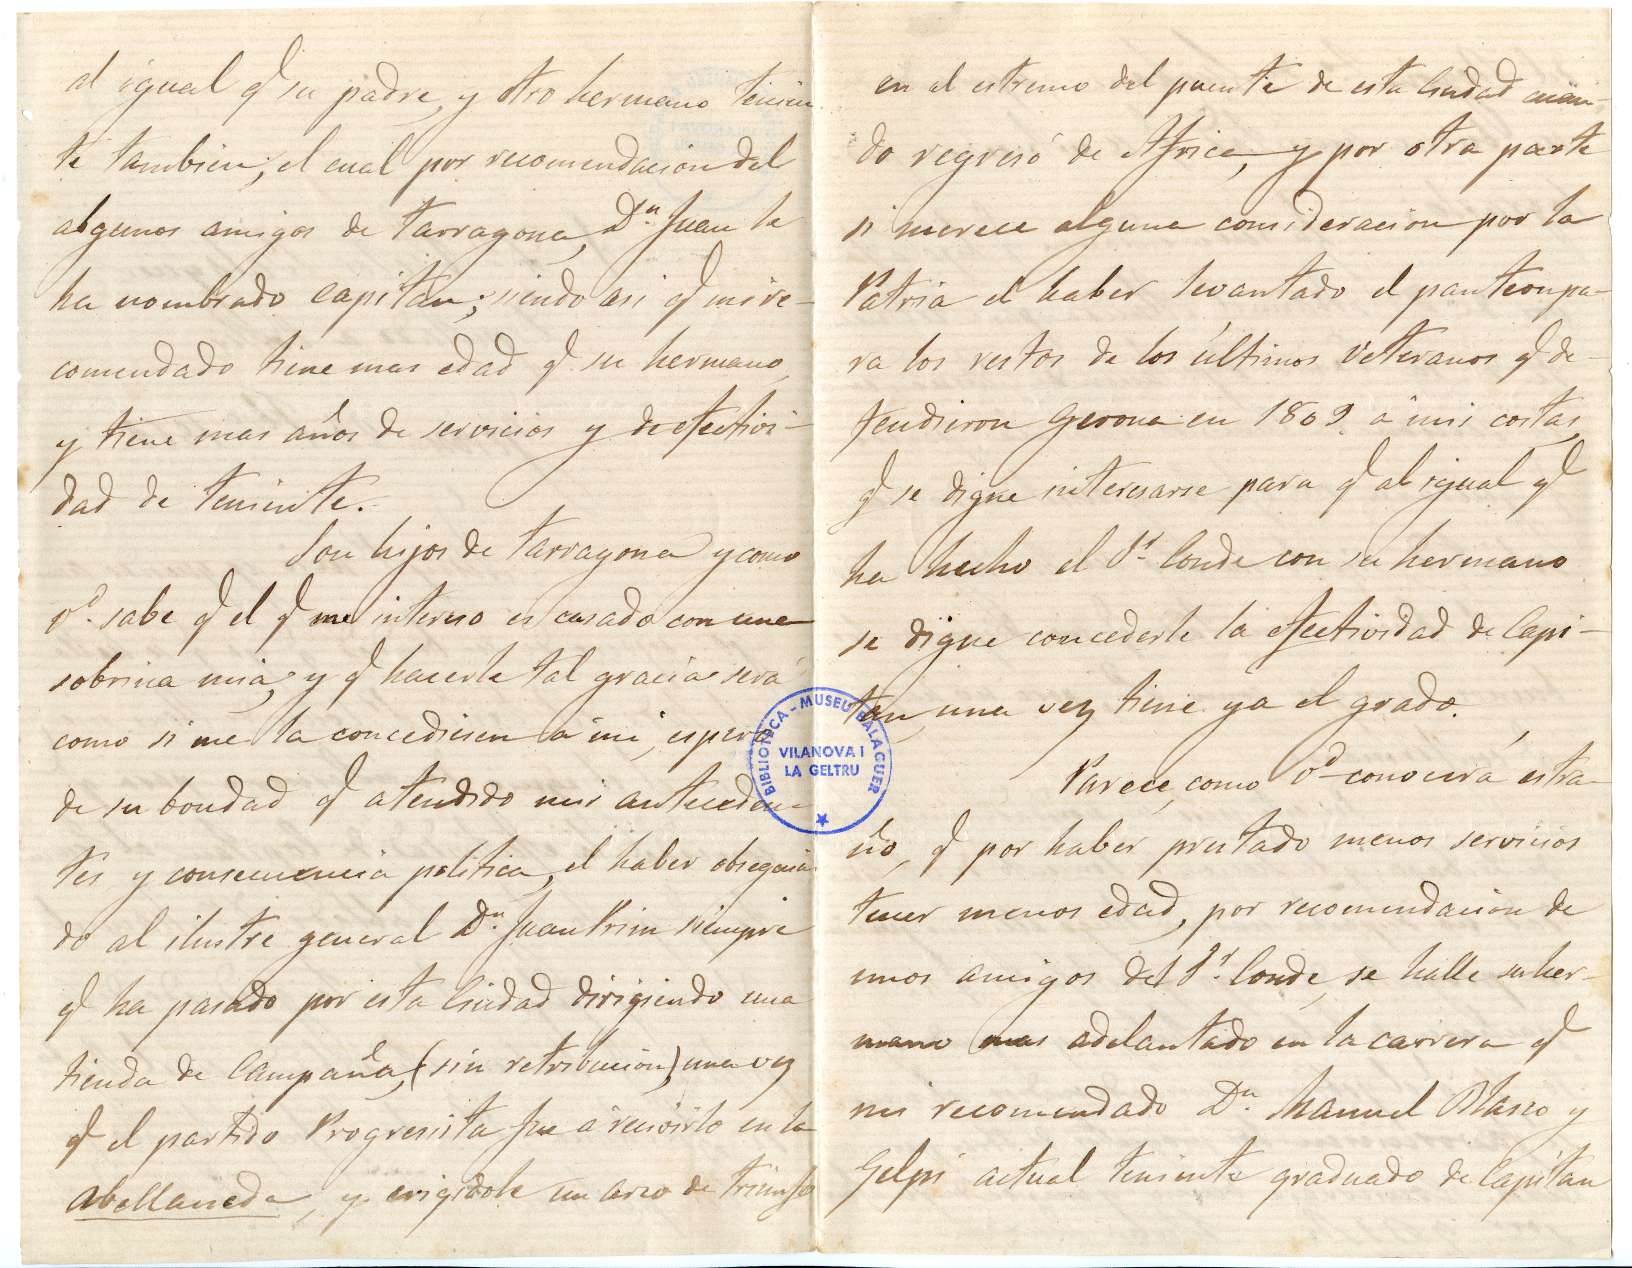 al igual q su padre, y otro hermano tenien
te tambien; el cual por recomendacion del
algunos amigos de Tarragona, Dn. Juan le
ha nombrado capitan; siendo asi q mi re-
comendado tiene mas edad q su hermano,
y tiene mas años de servicios y de efectivi-
dad de teniente.
Son hijos de Tarragona y como
Vd. sabe q el q me intereso es casado con una
sobrina mia, y q hacerle tal gracia será
como si me la concediesen á mi, espero
de su bondad q atendido mis anteceden-
tes y consecuencia politica, el haber obsequia
do al ilustre general Dn. Juan Prim siempre
q ha pasado por esta Ciudad dirigiendo una
tienda de Campaña, (sin retribucion) una vez
q el partido Progresista fue á recivirlo en la
Abellaneda, y erigidole un arco de triunfo
en el estremo del puente de esta Ciudad cuan-
do regresó de Africa, y por otra parte
si merece alguna consideracion por la
Patria el haber levantado el panteon pa-
ra los restos de los últimos veteranos q de-
fendieron Gerona en 1809 á mis costas,
q se digne interesarse para q al igual q
ha hecho el Sr. Conde con su hermano
se digne concederle la efectividad de Capi-
tan, una vez tiene ya el grado.
Parece, como Vd conocerá estra-
ño, q por haber prestado menos servicios
tener menos edad, por recomendacion de
unos amigos del Sr. Conde, se halle su her-
mano mas adelantado en la carrera q
mi recomendado Dn. Manuel Blasco y
Gelpi actual teniente graduado de Capitan
BIBLIOTECA - MUSEU BALAGUER
VILANOVA I
LA GELTRU